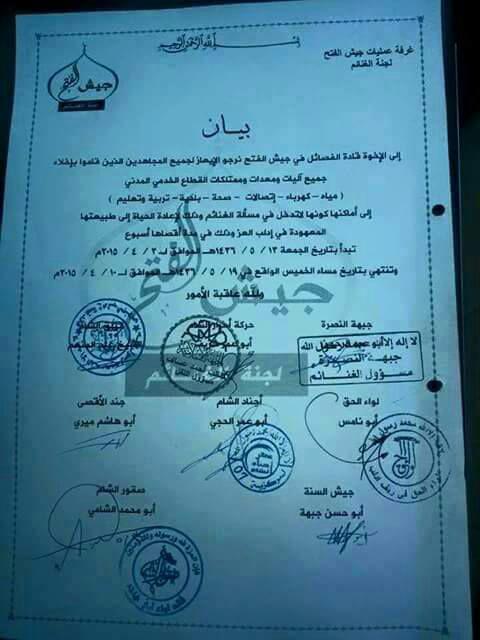 بسم الله الرحمن الرحيم
غرفة عمليات جيش الفتح
لجنة الغنائم
جيش الفتح
لجنة الغنائم
بيان
إلى الإخوة قادة الفصائل في جيش الفتح نرجو الإيعاز لجميع المجاهدين الذين قاموا بإخلاء
جميع آليات ومعدات وممتلكات القطاع الخدمي المدني
( مياه - كهرباء - إتصالات - صحة - بلدية - تربية وتعليم )
إلى أماكنها كونها لاتدخل في مسألة الغنائم وذلك لإعادة الحياة إلى طبيعتها
المعهودة في إدلب العز وذلك في مدة أقصاها أسبوع
تبدأ بتاريخ الجمعة ١٣ / ٥ / ١٤٣٦هـ الموافق لـ ٣ / ٤ / ٢٠١٥م
وتنتهي بتاريخ مساء الخميس الواقع في ١٩ / ٥ / ١٤٣٦هـ الموافق لـ ١٠ / ٤ / ٢٠١٥م
ولله عاقبة الأمور
جبهة النصرة
حركة أحرار الشام
فيلق الشام
لا إله إلا الله
جبهة النصرة
مسؤول الغنائم
جيش الفتح
لجنة الغنائم
لواء الحق
أجناد الشام
جند الأقصى
أبو نامس
أبو عمر الحجي
أبو هاشم ميري
جيش السنة
صقور الشام
أبو حسن جبهة
أبو محمد الشامي